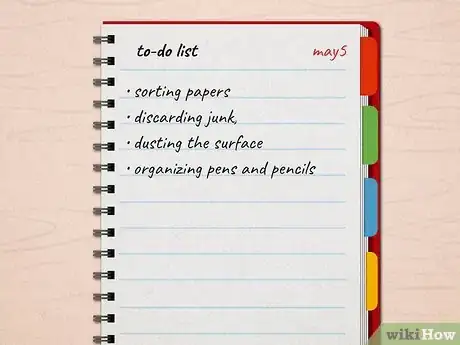 to-do list may5
· sorting papers
· discarding junk,
· dusting the surface
· organizing pens and pencils
wikiHow